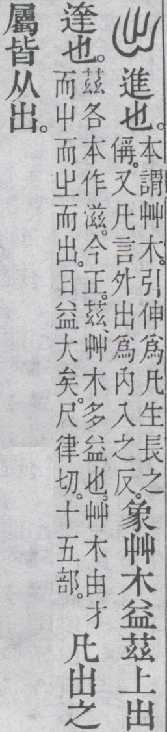 出進也。本謂艸木。引伸爲凡生長之偁。又凡言外出爲內入之反。象艸木益茲上出
達也。茲各本作滋。今正。茲、艸木多益也。艸木由才而屮而㞢而出。日益大矣。尺律切。十五部。凡出之
屬皆从出。